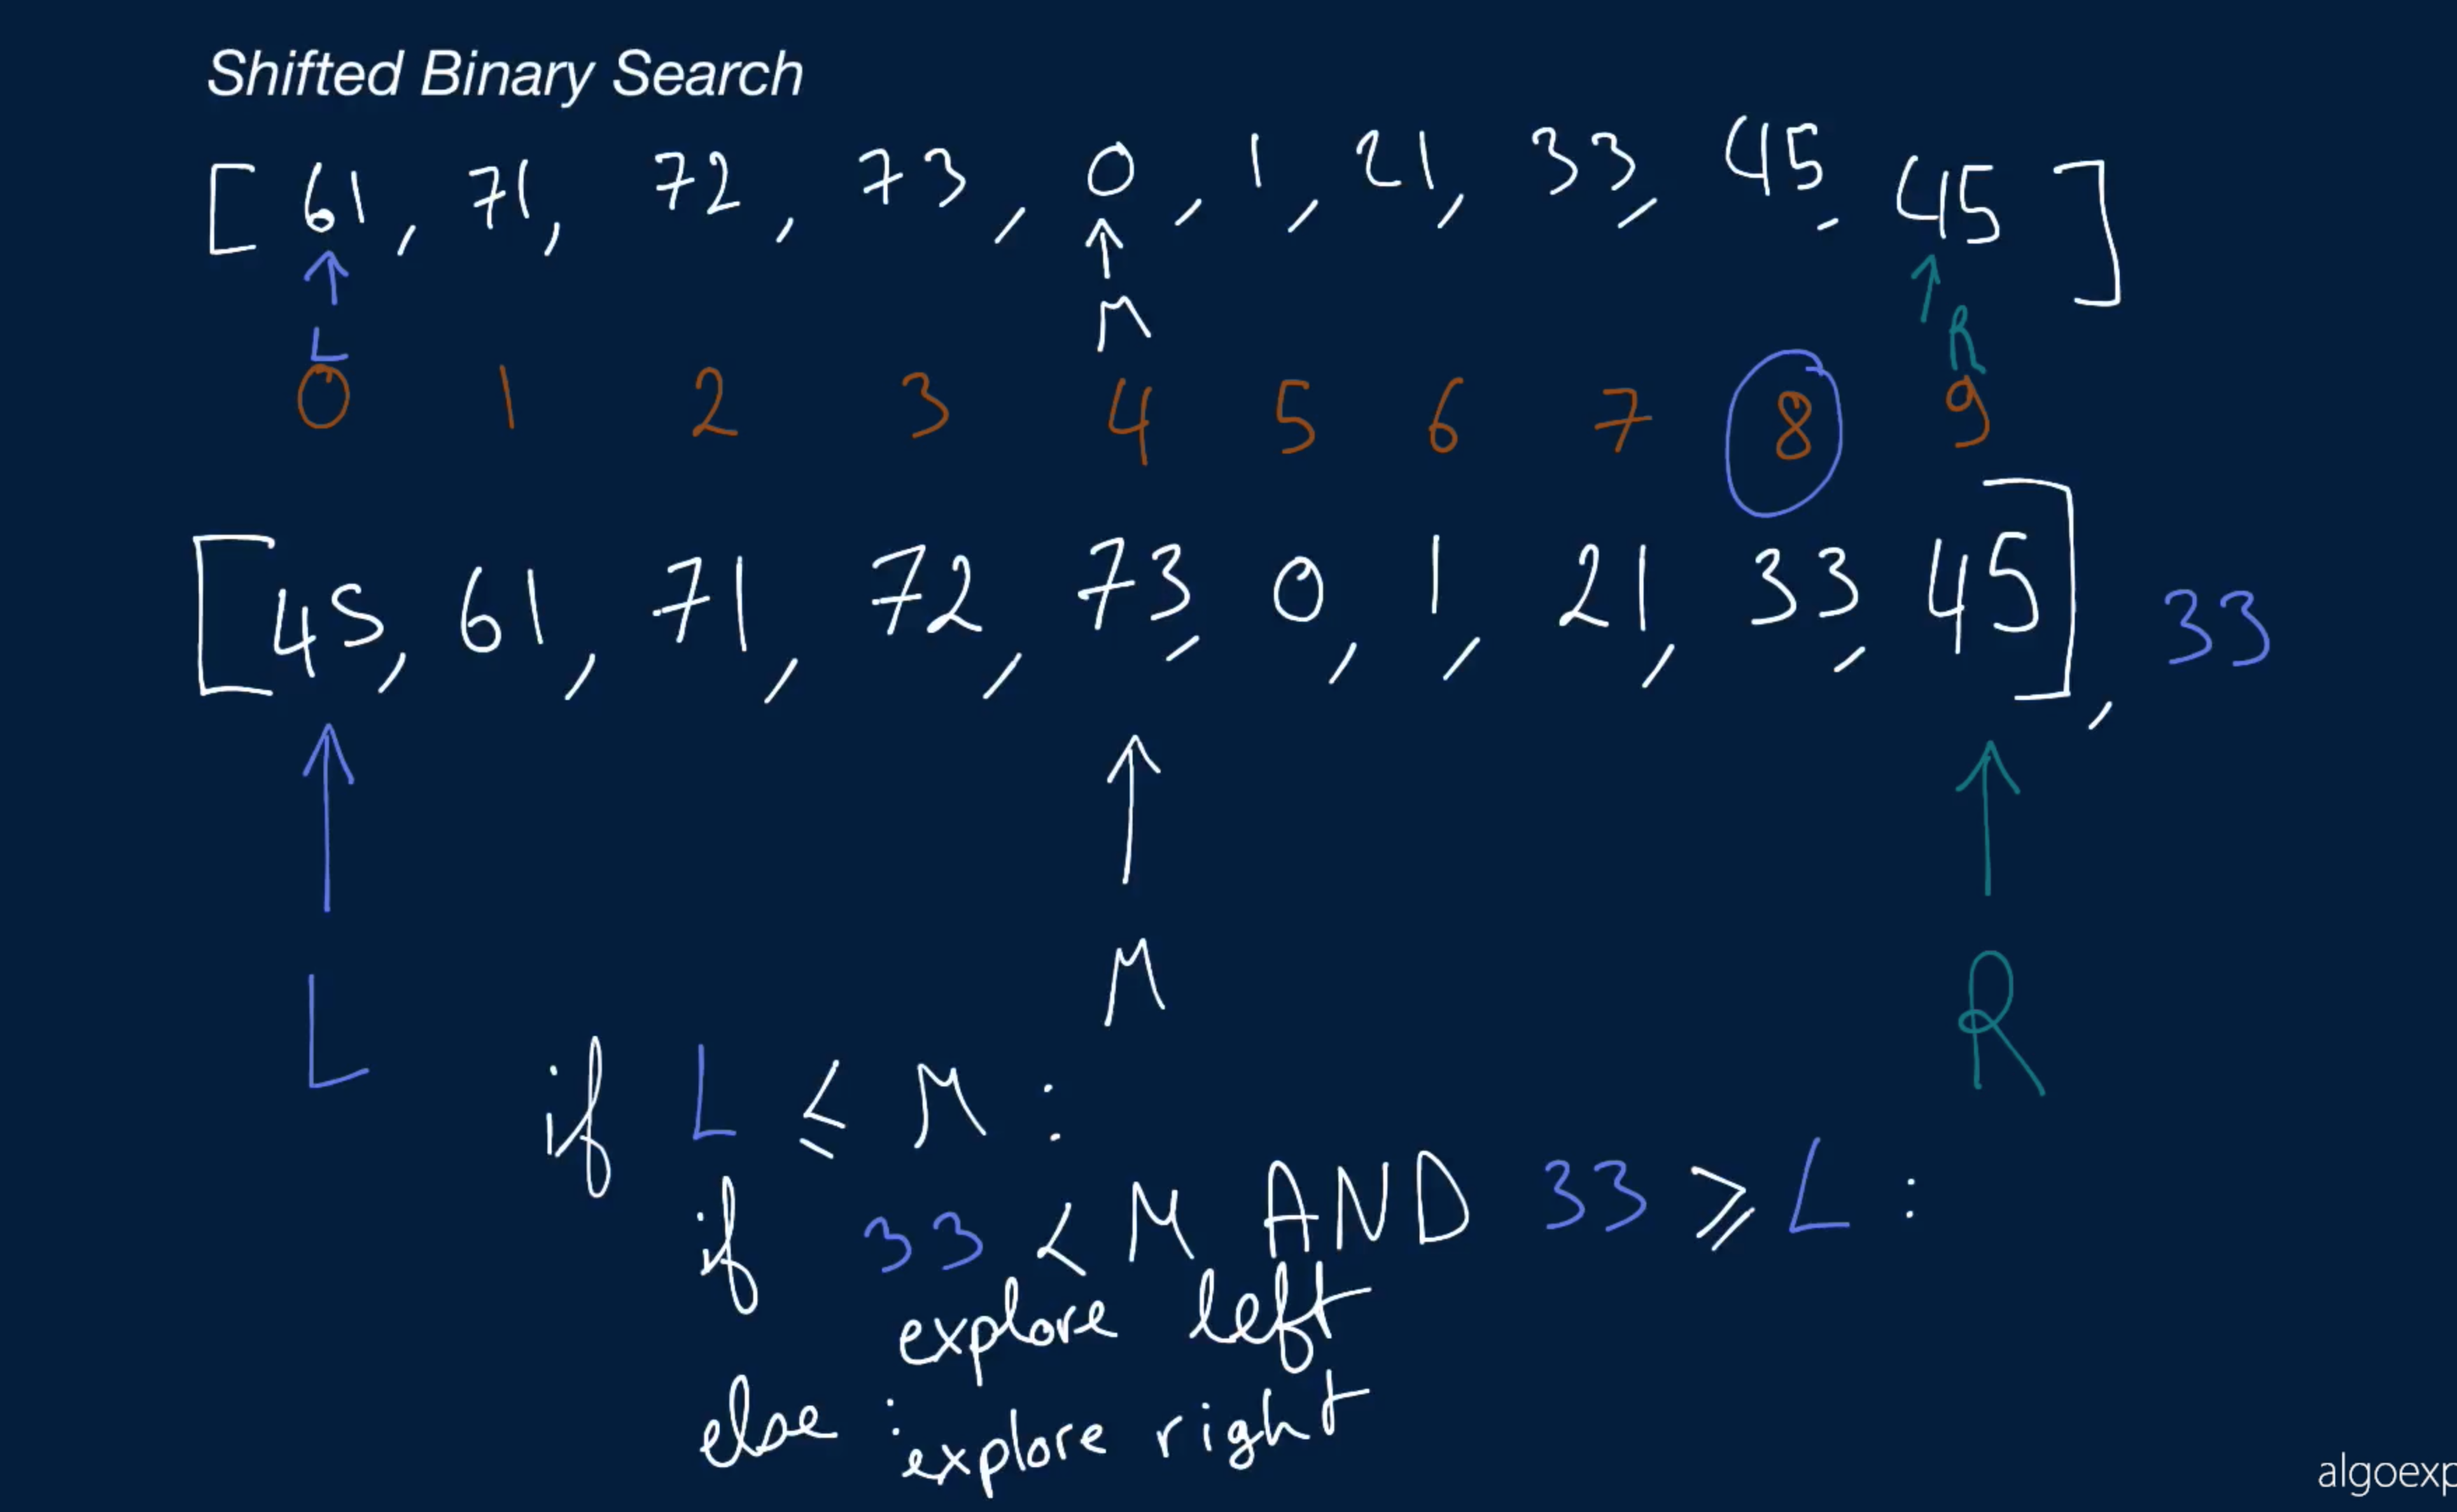 Shifted Binary Search
[ 61, 71, 72, 73, 0, 1, 21, 33, 45, 45 ]
M
L R
0 1 2 3 4 5 6 7 8 9
[45, 61, 71, 72, 73, 0, 1, 21, 33, 45], 33
L M R
if L ≤ M :
if 33 < M AND 33 ≥ L :
explore left
else :
explore right
algoexp